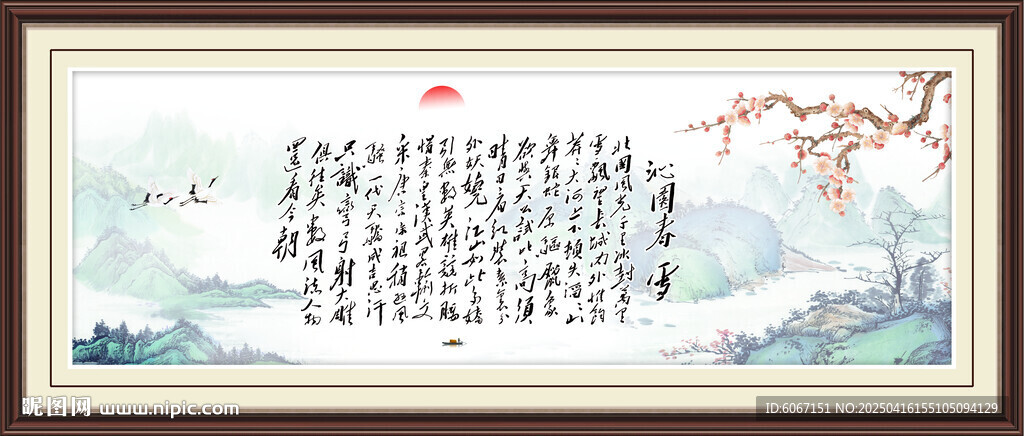 沁園春 雪
北國風光千里冰封萬里
雪飄望長城內外惟餘
莽々大河上下頓失滔々山
舞銀蛇原驅臘象
欲與天公試比高須
晴日看紅裝素裹分
外妖嬈 江山如此多嬌
引無數英雄競折腰
惜秦皇漢武略輸文
采唐宗宋祖稍遜風
騷一代天驕成吉思汗
只識彎弓射大雕
俱往矣數風流人物
還看今朝
昵图网 www.nipic.com
ID:6067151 NO:20250416155105094129